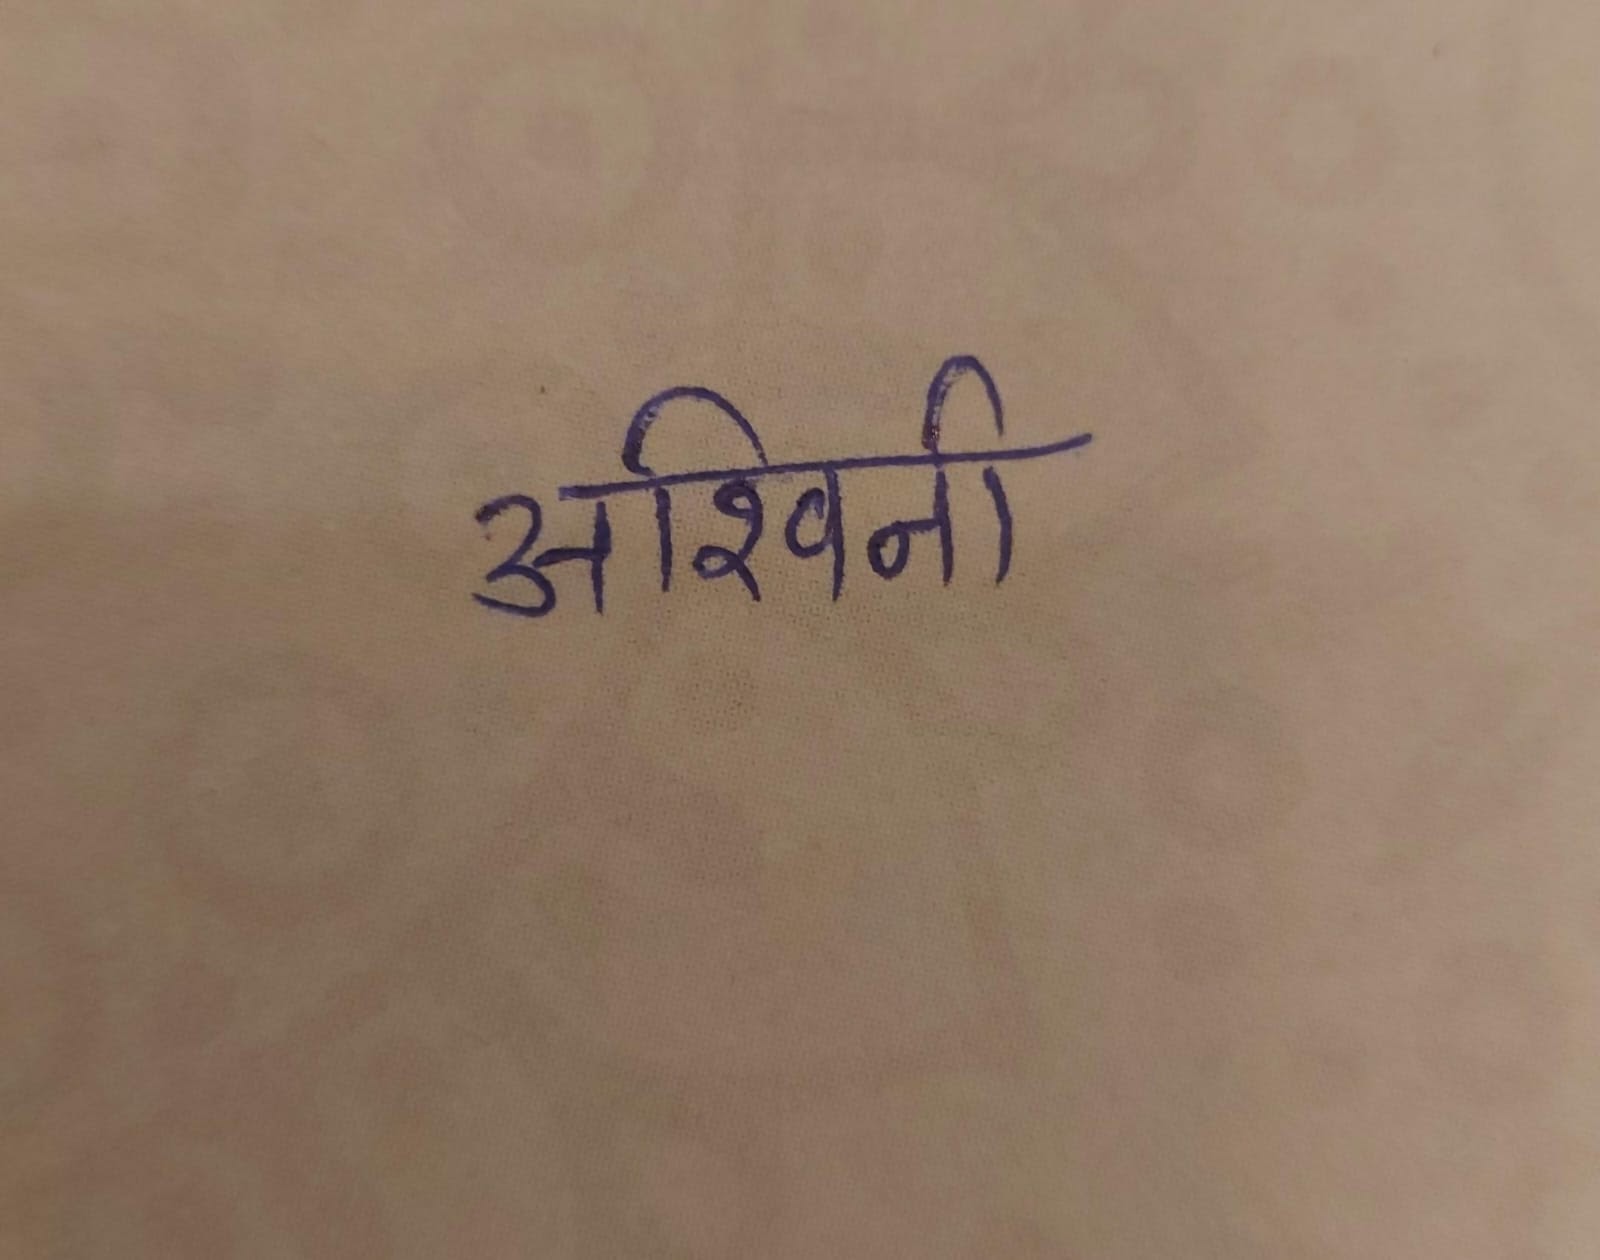 अश्विनी